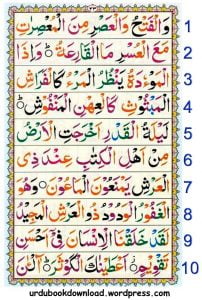 وَالْفَتْحُ وَالْعَصْرِ مِنَ الْمُعْصِرٰتِ 1
مَعَ الْعُسْرِ مَا الْقَارِعَةُ ۞ وَاِذَا 2
الْمَوْءٗدَةُ يَنْظُرُ الْمَرْءُ كَالْفَرَاشِ 3
الْمَبْثُوْثِ كَالْعِهْنِ الْمَنْفُوْشِ 4
لَيْلَةُ الْقَدْرِ اَخْرَجَتِ الْاَرْضُ 5
مِنْ اَهْلِ الْكِتٰبِ عِنْدَ ذِى 6
الْعَرْشِ يَمْنَعُوْنَ الْمَاعُوْنَ ۞ وَهُوَ 7
الْغَفُوْرُ الْوَدُوْدُ ذُو الْعَرْشِ الْمَجِيْدُ 8
لَقَدْ خَلَقْنَا الْاِنْسَانَ فِىْ اَحْسَنِ 9
تَقْوِيْمٍ ۞ اَعْطَيْنٰكَ الْكَوْثَرَ ۞ 10
urdubookdownload.wordpress.com